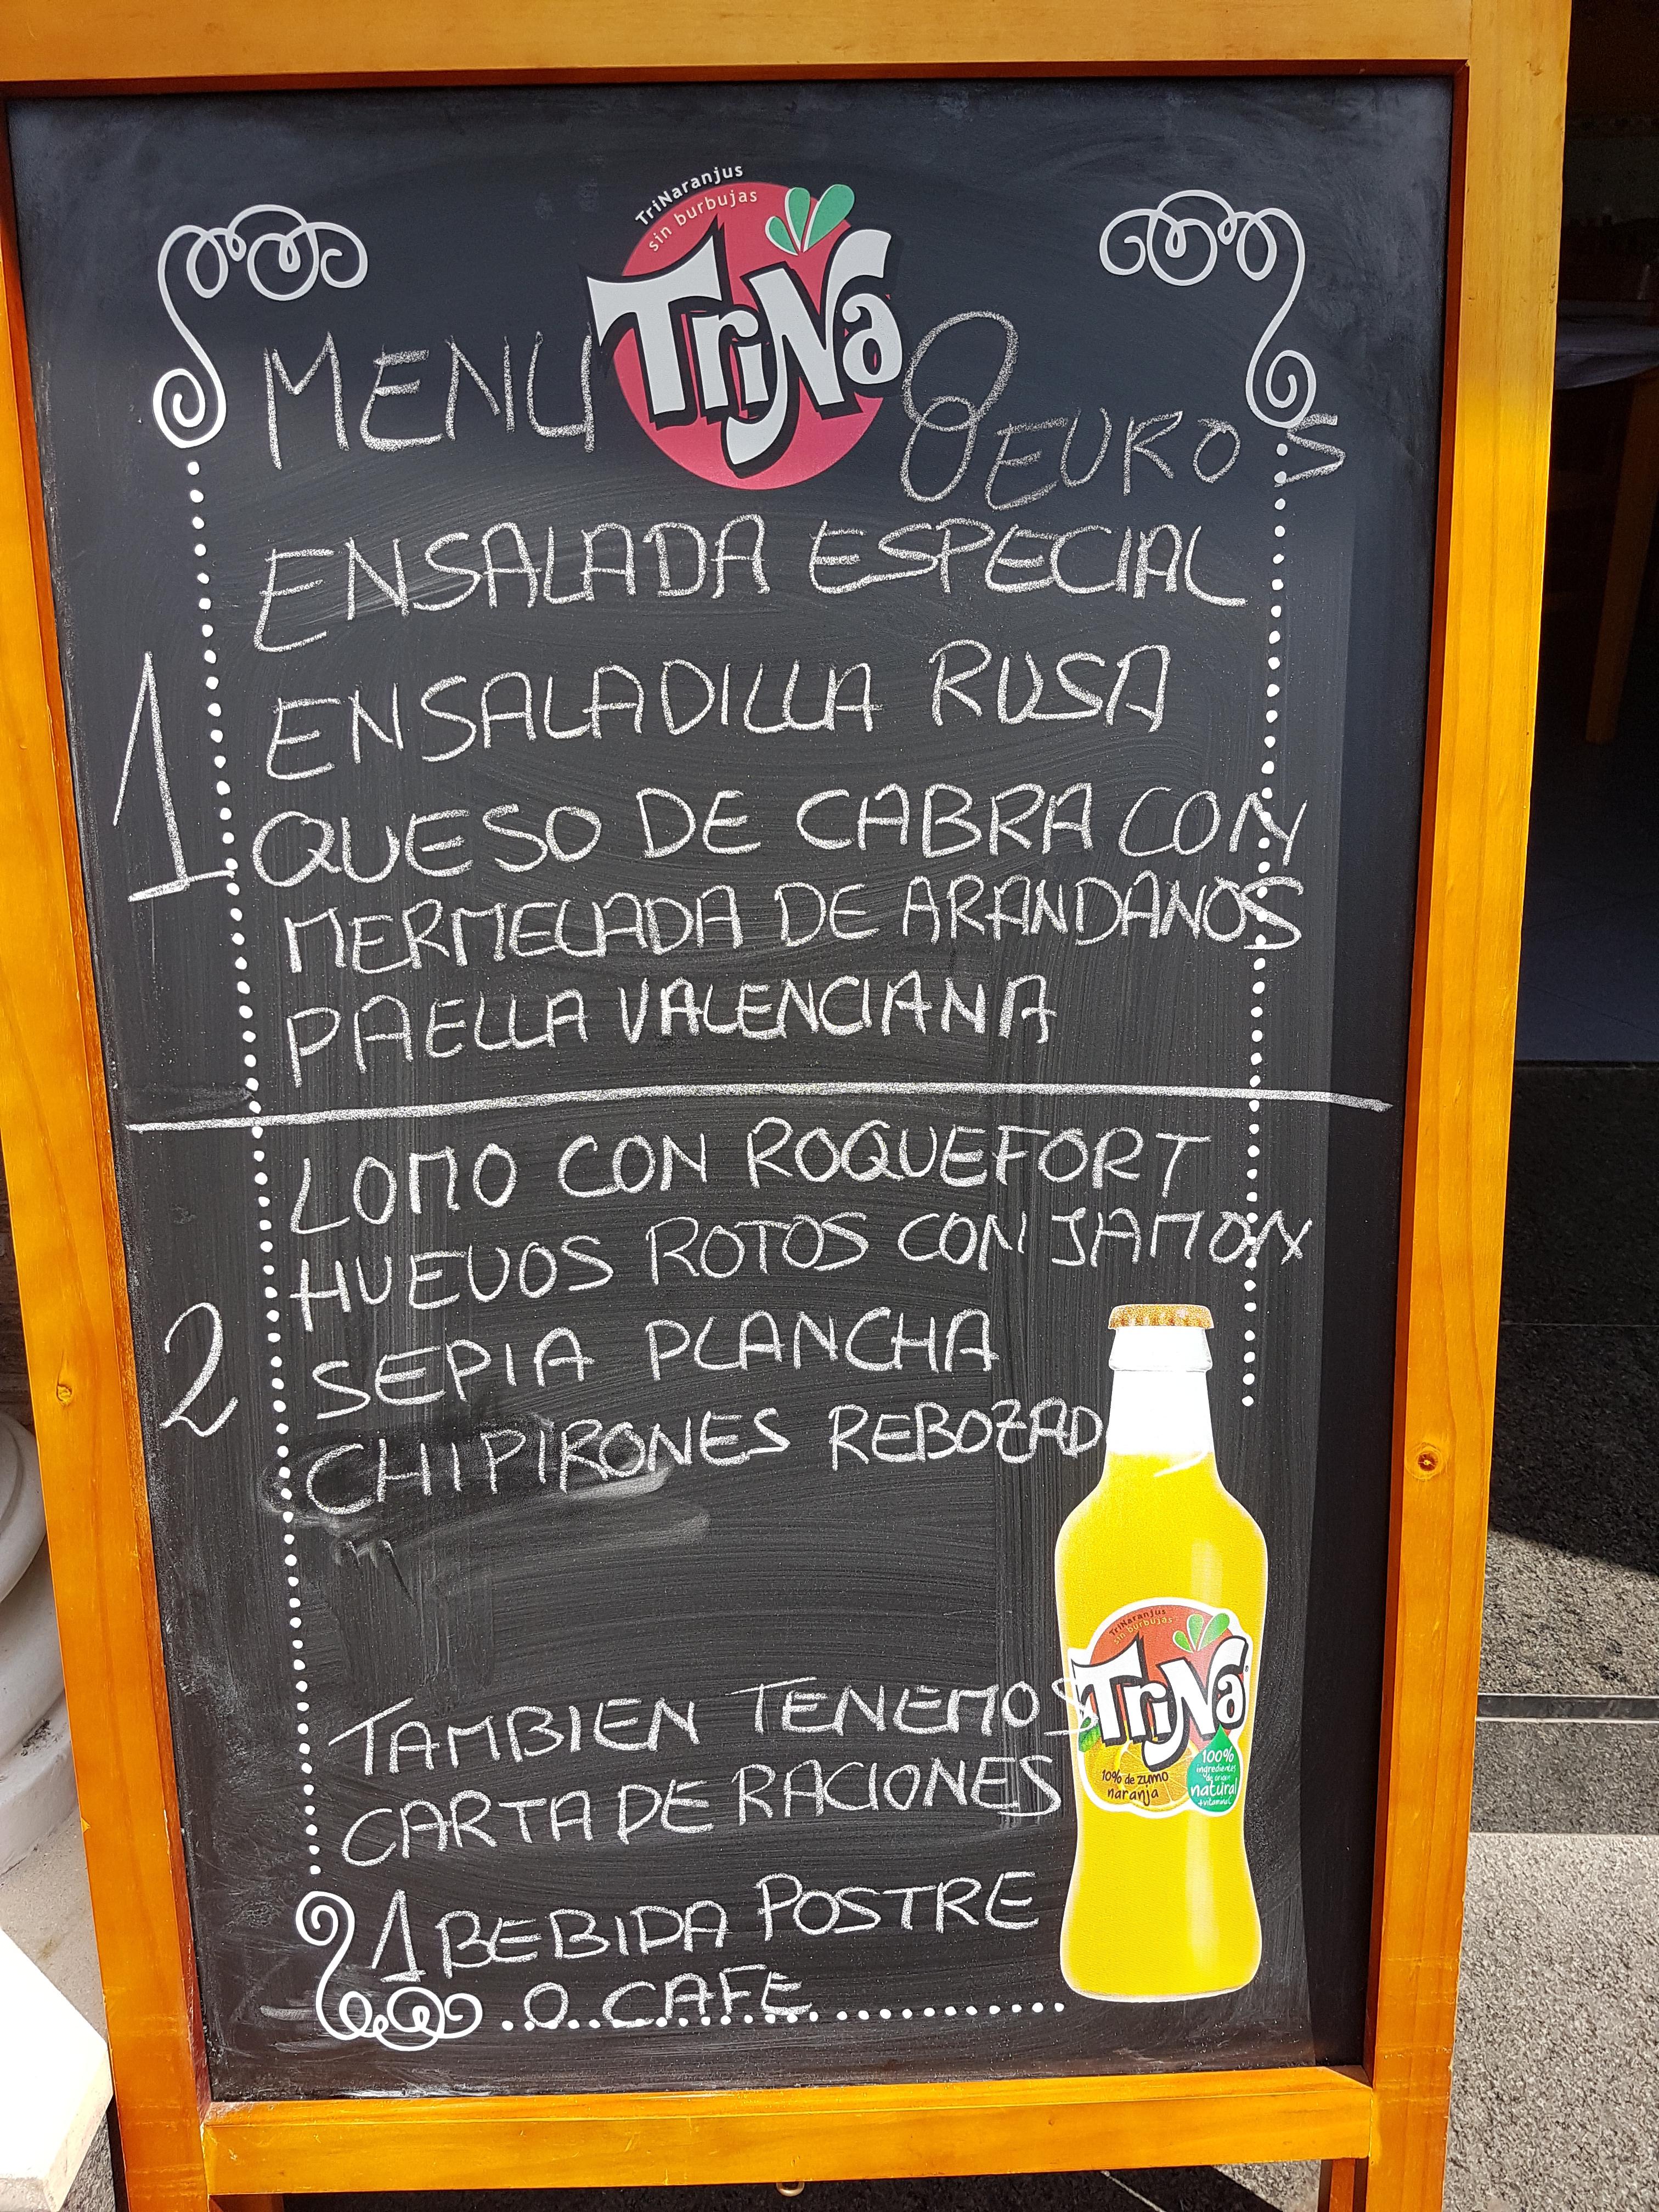 TriNaranjus
sin burbujas
TriNa
MENU 8 EUROS
ENSALADA ESPECIAL
ENSALADILLA RUSA
1
QUESO DE CABRA CON
MERMELADA DE ARANDANOS
PAELLA VALENCIANA
LOMO CON ROQUEFORT
HUEVOS ROTOS CON JAMON
2
SEPIA PLANCHA
CHIPIRONES REBOZAD
TAMBIEN TENEMOS
CARTA DE RACIONES
1 BEBIDA POSTRE
O CAFE
TriNaranjus
sin burbujas
TriNa
10% de zumo
naranja
100%
ingredientes
de origen
natural
+vitamina C